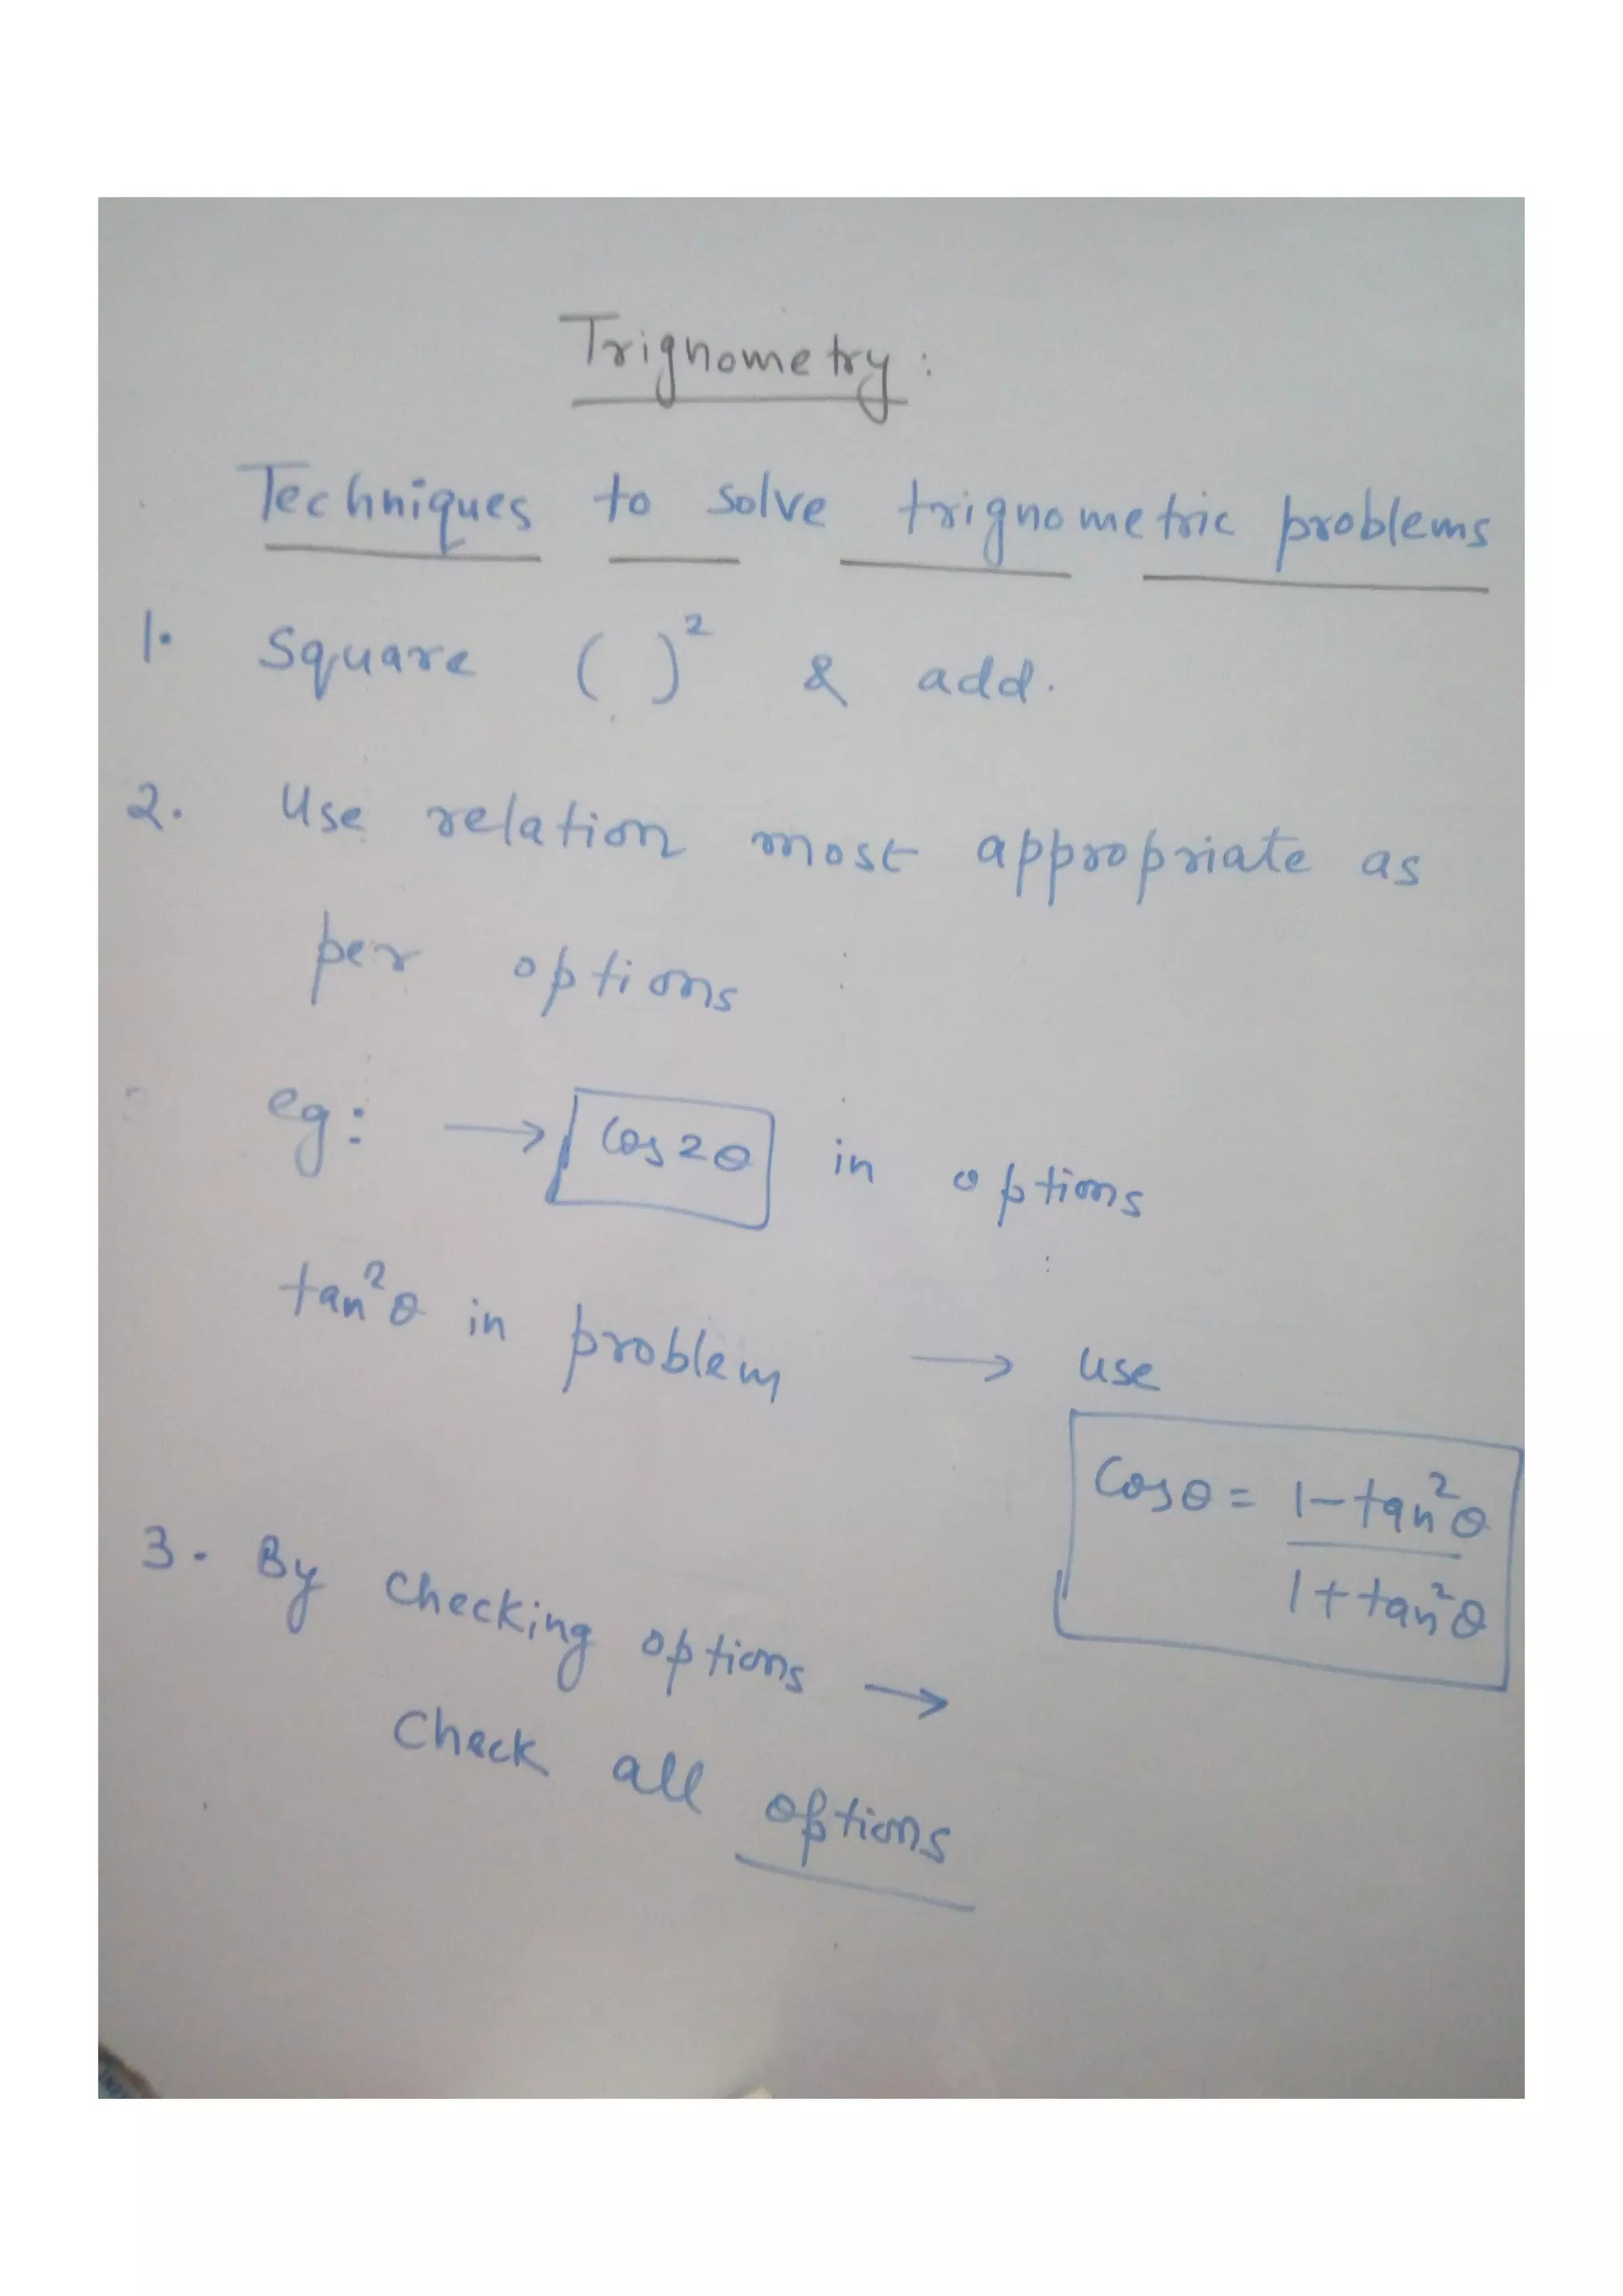 Trignometry:
Techniques to solve trignometric problems
1. Square ( )² & add.
2. Use relation most appropriate as
per options
eg: → cos2θ in options
tan²θ in problem → use
Cosθ = 1-tan²θ
1+tan²θ
3. By checking options →
Check all options